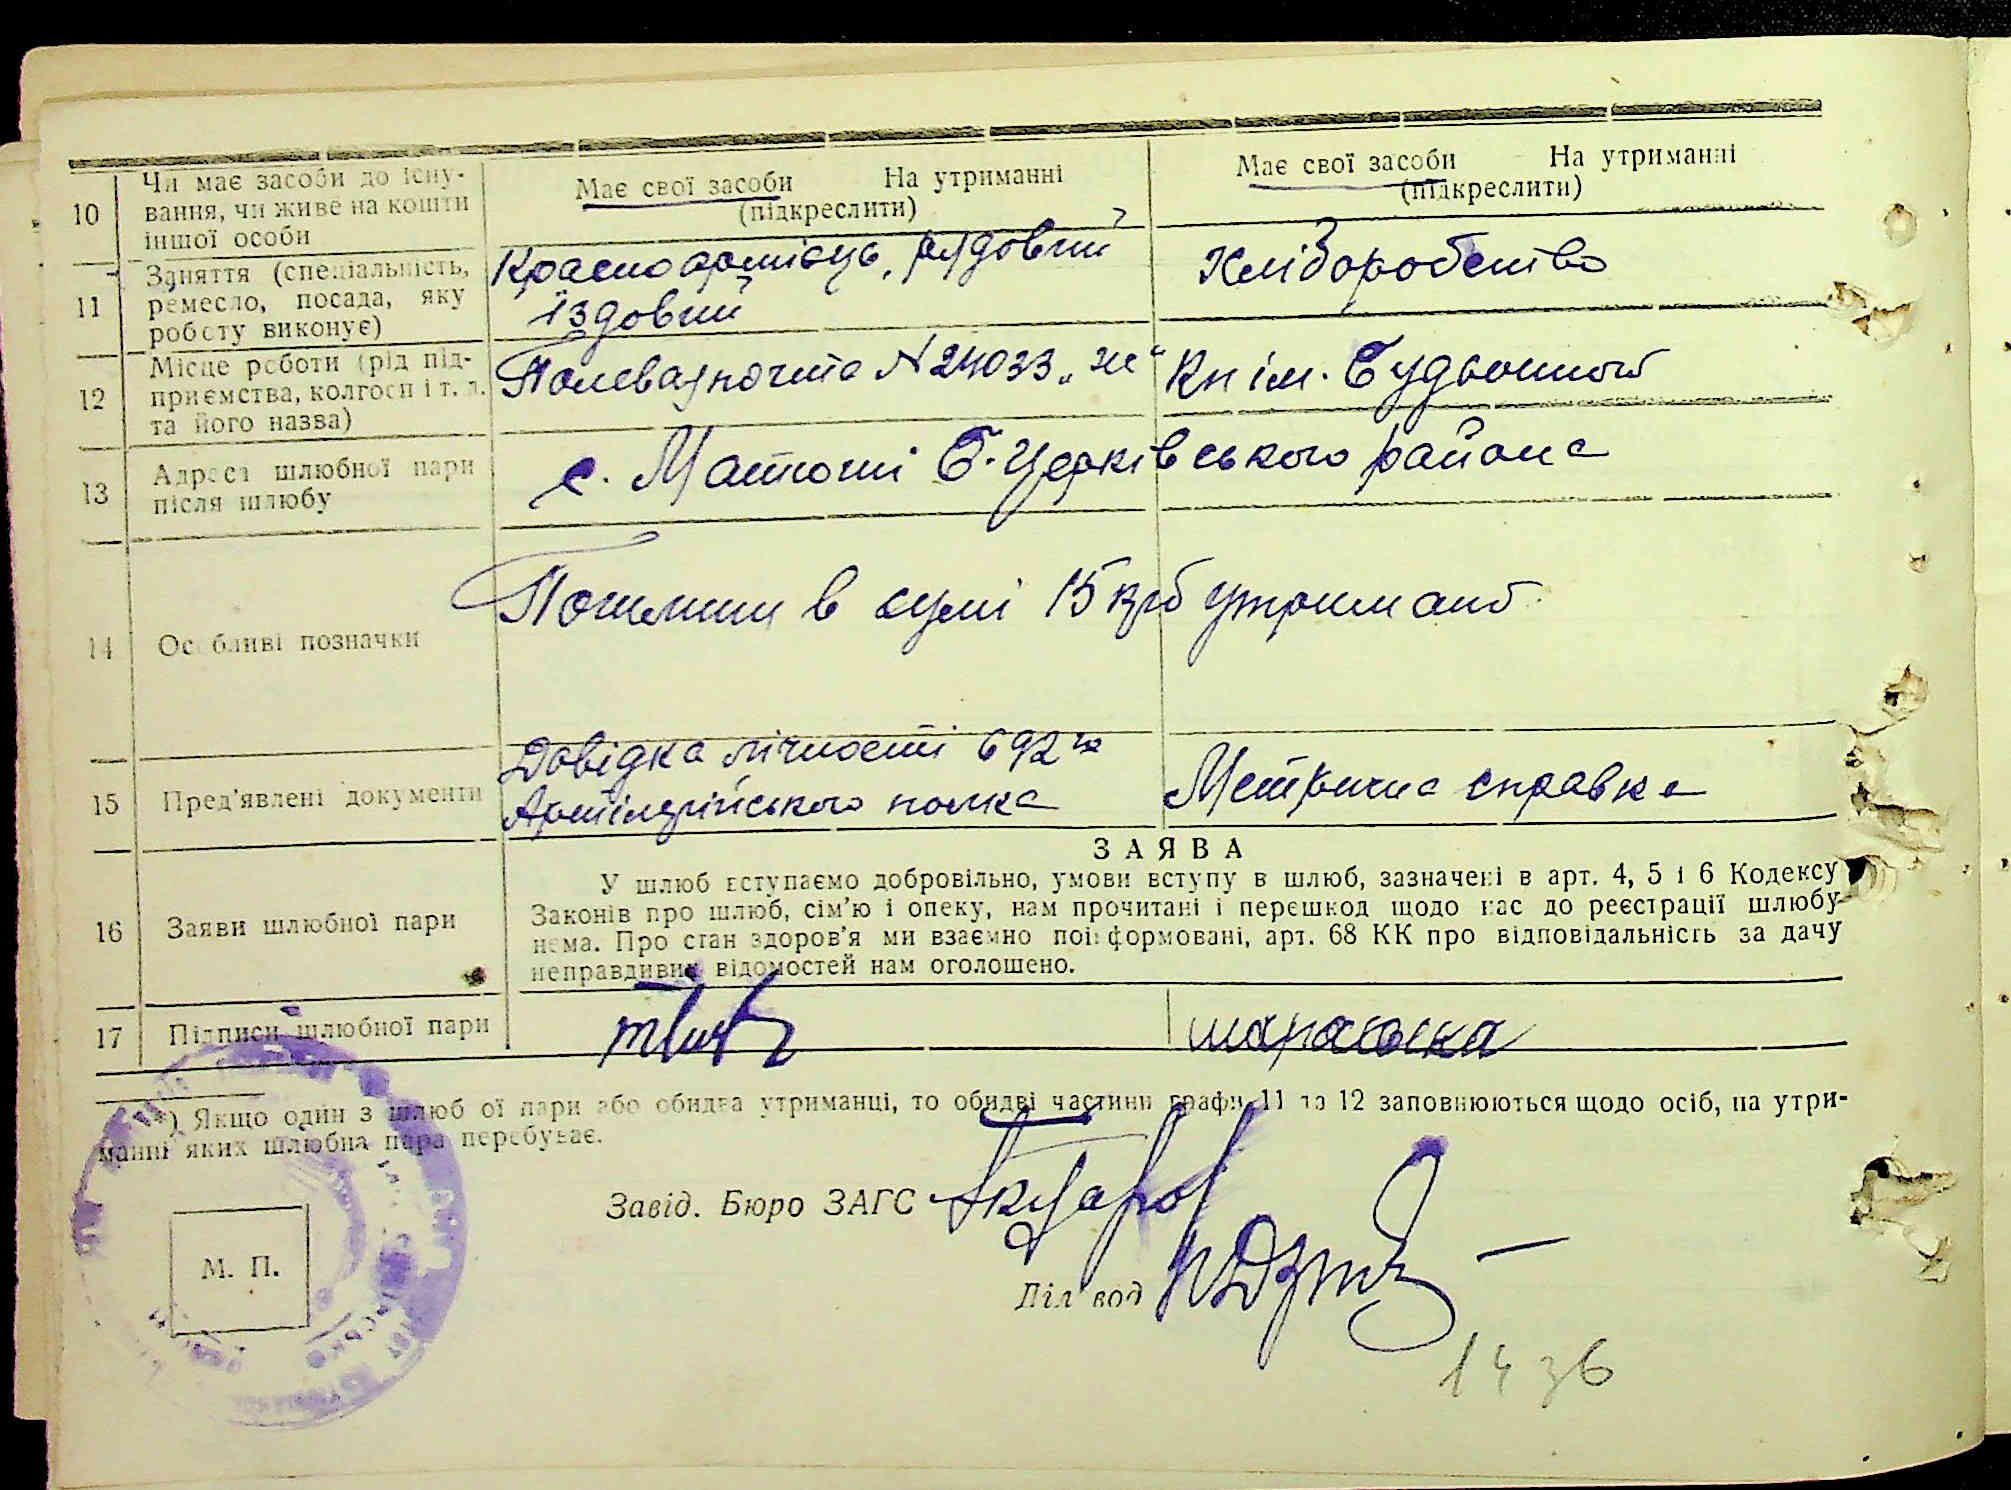 10 Чи має засоби до існу-
вання, чи живе на кошти
іншої особи
Має свої засоби На утриманні
(підкреслити)
Має свої засоби На утриманні
(підкреслити)
11 Заняття (спеціальність,
ремесло, посада, яку
роботу виконує)
Красноармієць, рядовий
їздовий
Хліборобство
12 Місце роботи (рід під-
приємства, колгосп і т. д.
та його назва)
Полевая почта N 24033 „Ж“
Кп ім. Будьонного
13 Адреса шлюбної пари
після шлюбу
с. Матюші Б. Церківського района
14 Особливі позначки
в сумі 15 крб
15 Пред'явлені документи
Довідка лічності 692 го
Артілерійського полка
Метрична справка
ЗАЯВА
16 Заяви шлюбної пари
У шлюб вступаємо добровільно, умови вступу в шлюб, зазначені в арт. 4, 5 і 6 Кодексу
Законів про шлюб, сім'ю і опеку, нам прочитані і перешкод щодо нас до реєстрації шлюбу
нема. Про стан здоров'я ми взаємно поінформовані, арт. 68 КК про відповідальність за дачу
неправдивих відомостей нам оголошено.
17 Підписи шлюбної пари
*) Якщо один з шлюбної пари або обидва утриманці, то обидві частини графи 11 та 12 заповнюються щодо осіб, на утри-
манні яких шлюбна пара перебуває.
Завід. Бюро ЗАГС
М. П.
Діловод